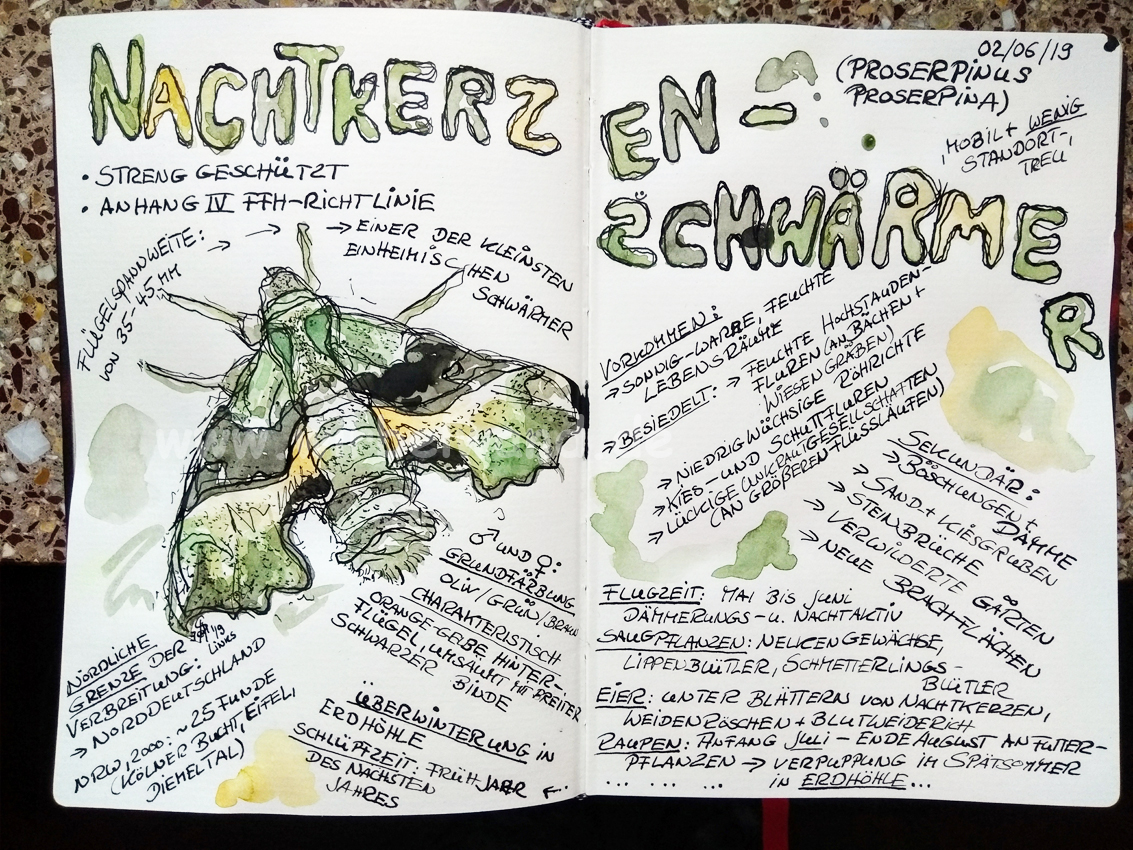 NACHTKERZ
• STRENG GESCHÜTZT
• ANHANG IV FFH-RICHTLINIE
FLÜGELSPANNWEITE: → →
VON 35-45 MM
→ EINER DER KLEINSTEN
EINHEIMISCHEN
SCHWÄRMER
♂ UND ♀:
GRUNDFÄRBUNG
OLIV/GRÜN/BRAUN
CHARAKTERISTISCH
ORANGE-GELBE HINTER-
FLÜGEL, UMSÄUMT MIT BREITER
SCHWARZER BINDE
19
LINKS
NÖRDLICHE
GRENZE DER
VERBREITUNG:
→ NORDDEUTSCHLAND
NRW 2000: ~ 25 FUNDE
(KÖLNER BUCHT, EIFEL,
DIEMELTAL)
ÜBERWINTERUNG IN
ERDHÖHLE
SCHLÜPFZEIT: FRÜHJAHR
DES NÄCHSTEN
JAHRES
02/06/19
(PROSERPINUS
PROSERPINA)
EN -
, MOBIL + WENIG
STANDORT-
TREU
SCHWÄRMER
VORKOMMEN:
→ SONNIG-WARME, FEUCHTE
LEBENSRÄUME
→ BESIEDELT: → FEUCHTE HOCHSTAUDEN-
FLUREN (AN BÄCHEN +
WIESENGRÄBEN)
→ NIEDRIGWÜCHSIGE RÖHRICHTE
→ KIES- UND SCHUTTFLUREN
→ LÜCKIGE (UNKRAUTGESELLSCHAFTEN
(AN GRÖßEREN FLUSSLÄUFEN)
SEKUNDÄR:
→ BÖSCHUNGEN + DÄMME
→ SAND- + KIESGRUBEN
→ STEINBRÜCHE
→ VERWILDERTE GÄRTEN
→ NEUE BRACHFLÄCHEN
FLUGZEIT: MAI BIS JUNI
DÄMMERUNGS- U. NACHTAKTIV
SAUGPFLANZEN: NELKENGEWÄCHSE,
LIPPENBLÜTLER, SCHMETTERLINGS-
BLÜTLER
EIER: UNTER BLÄTTERN VON NACHTKERZEN,
WEIDENRÖSCHEN + BLUTWEIDERICH
RAUPEN: ANFANG JULI - ENDE AUGUST AN FUTTER-
PFLANZEN → VERPUPPUNG IM SPÄTSOMMER
IN ERDHÖHLE...